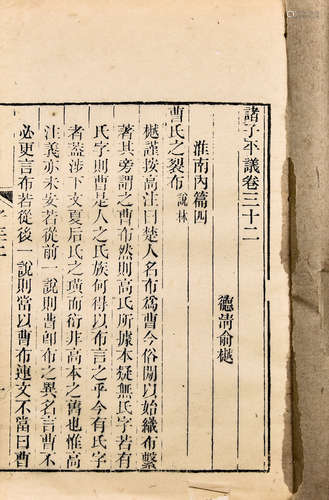 諸子平議卷三十二
德清俞樾
淮南內篇四
曹氏之裂布 說林
樾謹按高注曰楚人名布爲曹今俗閒以始織布繫
著其旁謂之曹布然則高氏所據本疑無氏字若有
氏字則曹是人之氏族何得以布言之乎今有氏字
者蓋涉下文夏后氏之璜而衍非高本之舊也惟高
注義亦未安若從前一說則曹卽布之異名言曹不
必更言布若從後一說則當以曹布連文不當曰曹